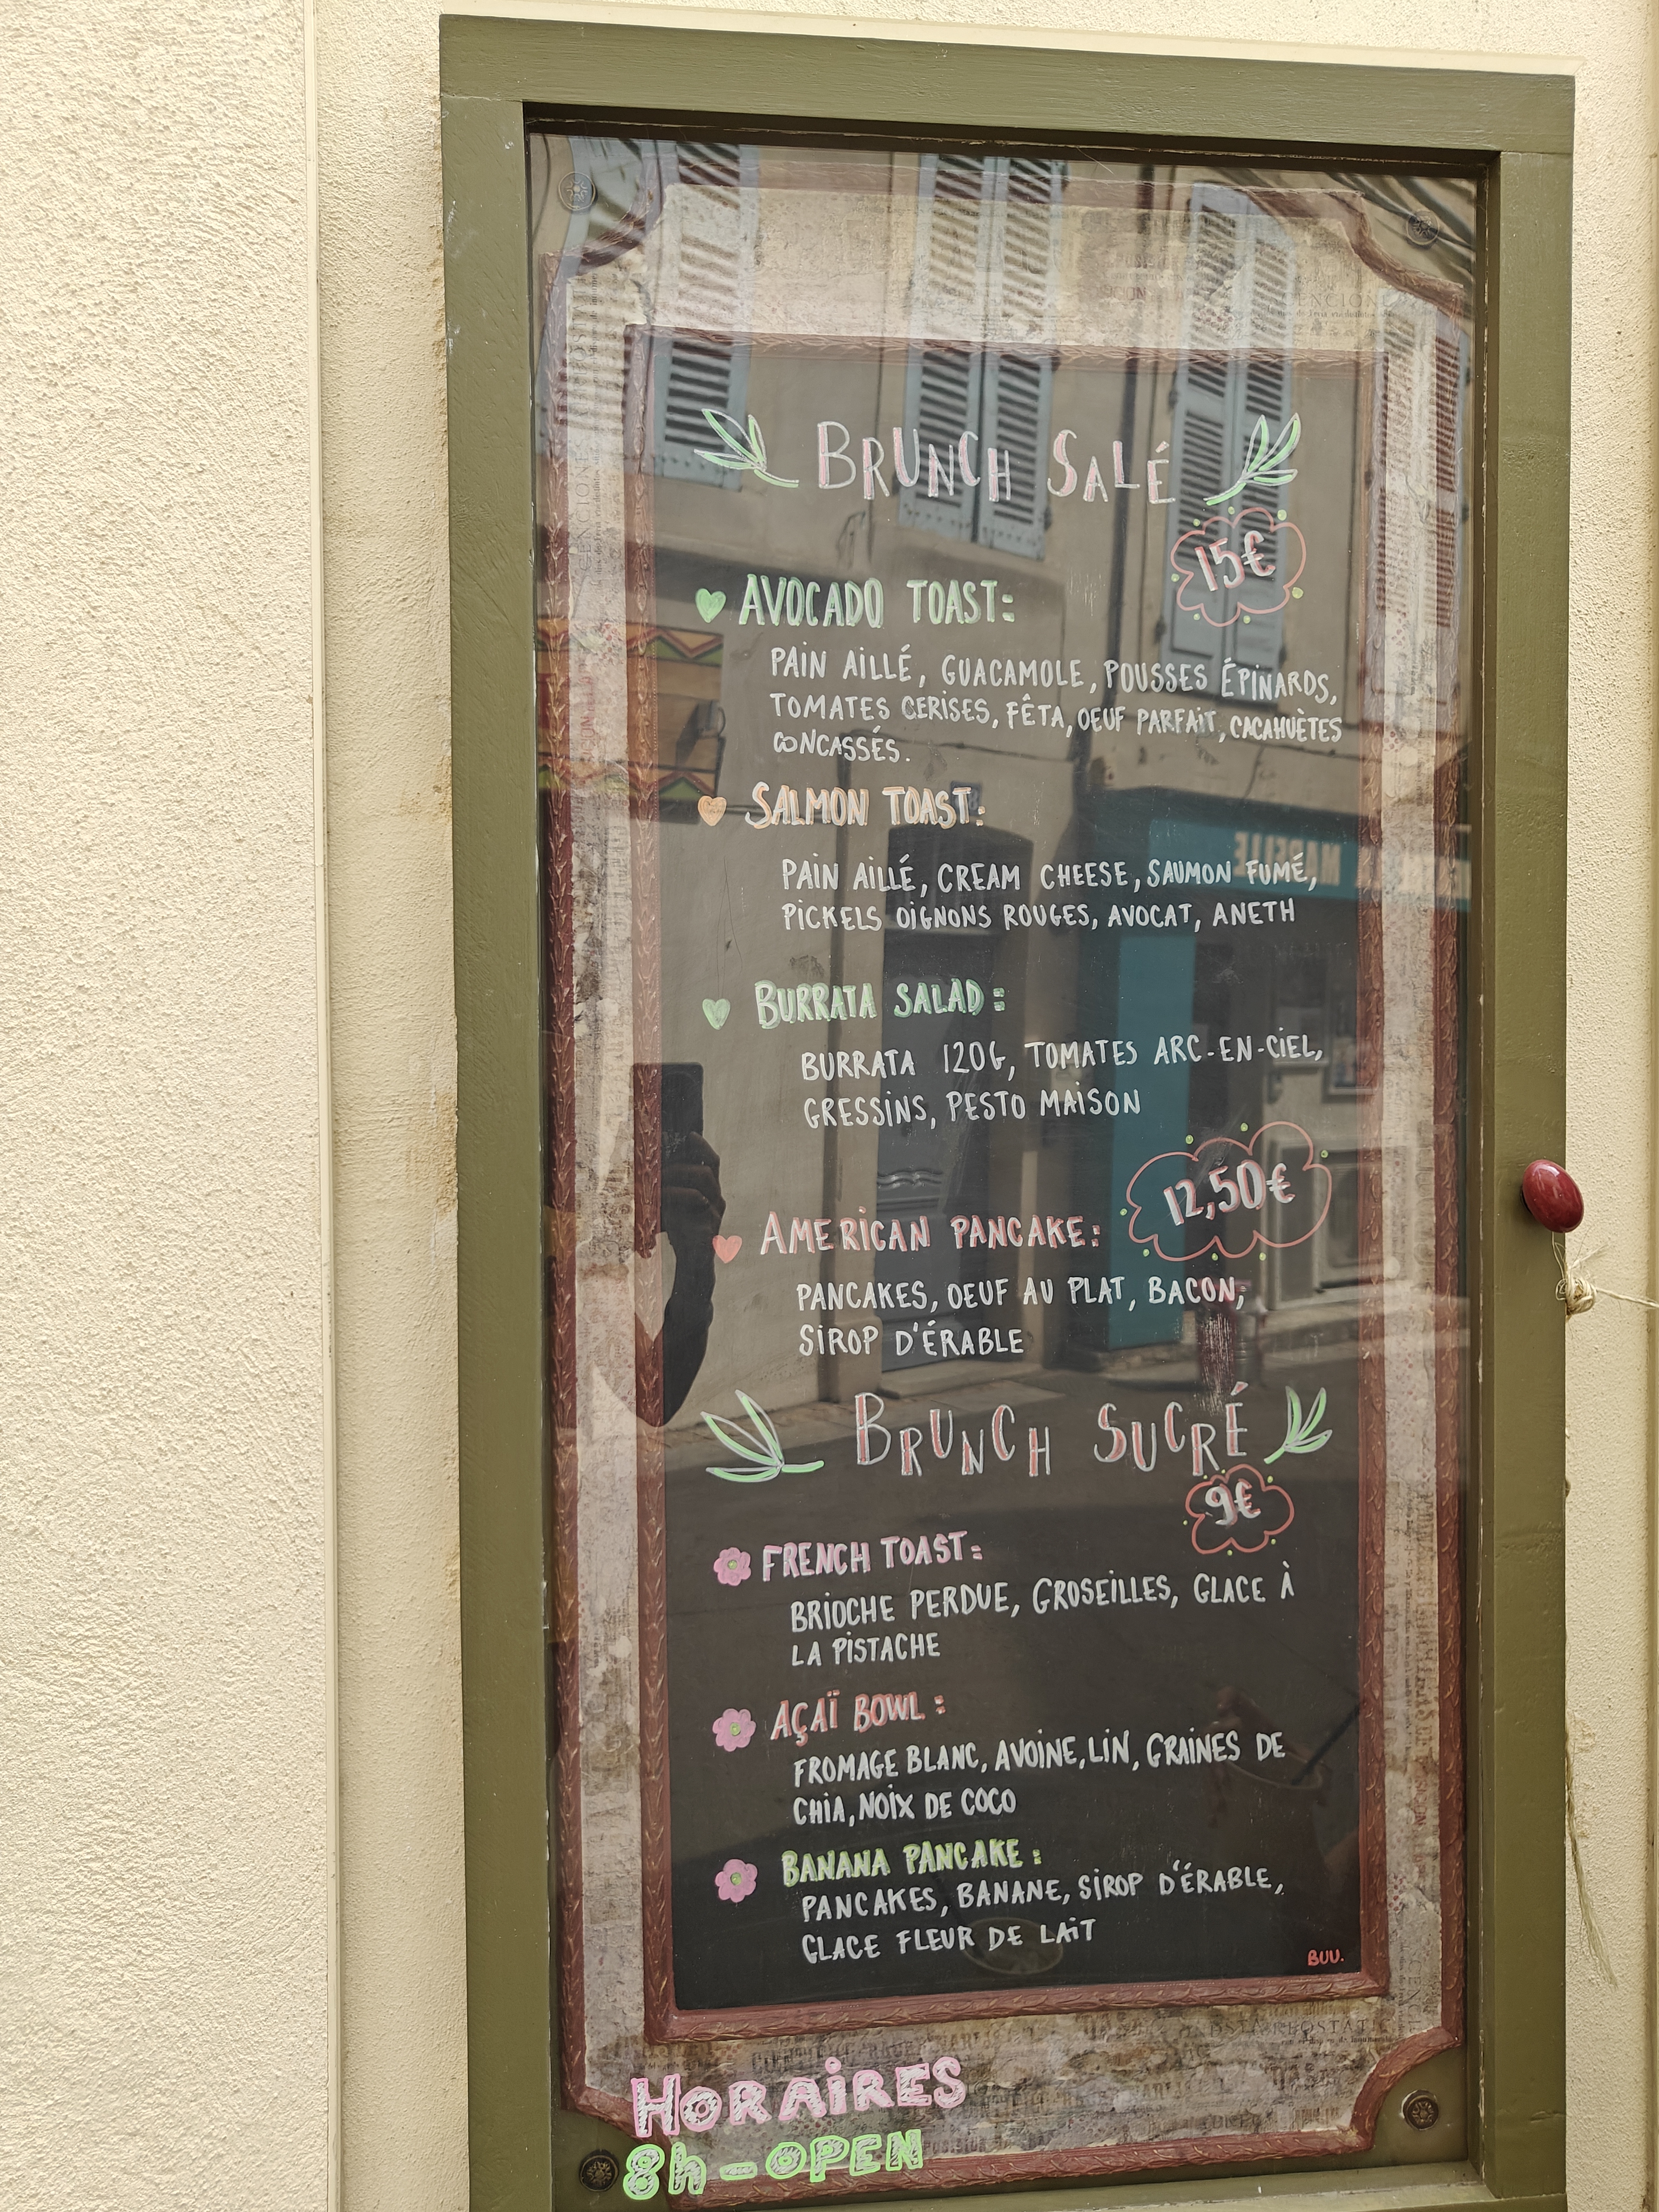 BRUNCH SALÉ
15€
AVOCADO TOAST:
PAIN AILLÉ, GUACAMOLE, POUSSES ÉPINARDS,
TOMATES CERISES, FÊTA, OEUF PARFAIT, CACAHUÈTES
CONCASSÉS.
SALMON TOAST:
PAIN AILLÉ, CREAM CHEESE, SAUMON FUMÉ,
PICKELS OIGNONS ROUGES, AVOCAT, ANETH
BURRATA SALAD:
BURRATA 120G, TOMATES ARC-EN-CIEL,
GRESSINS, PESTO MAISON
12,50€
AMERICAN PANCAKE:
PANCAKES, OEUF AU PLAT, BACON,
SIROP D'ÉRABLE
BRUNCH SUCRÉ
9€
FRENCH TOAST:
BRIOCHE PERDUE, GROSEILLES, GLACE À
LA PISTACHE
AÇAÏ BOWL:
FROMAGE BLANC, AVOINE, LIN, GRAINES DE
CHIA, NOIX DE COCO
BANANA PANCAKE:
PANCAKES, BANANE, SIROP D'ÉRABLE,
GLACE FLEUR DE LAIT
BUU.
HORAIRES
8h-OPEN